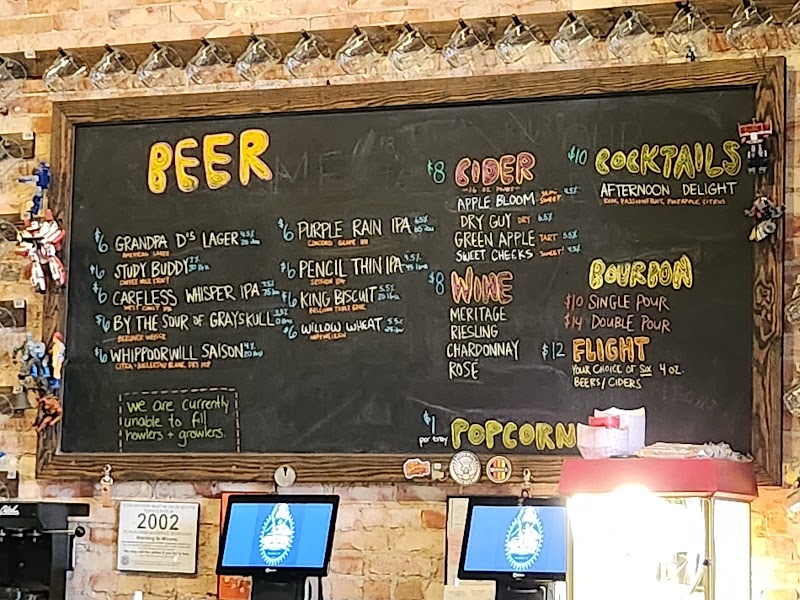 BEER
$6 GRANDPA D'S LAGER 4.5%
AMERICAN LAGER
$6 STUDY BUDDY
COFFEE MILK STOUT
$6 CARELESS WHISPER IPA
WEST COAST IPA
$6 BY THE SOUR OF GRAYSKULL
BERLINER WEISSE
$6 WHIPPOORWILL SAISON
we are currently
unable to fill
howlers + growlers.
$6 PURPLE RAIN IPA 6.5%
CONCORD GRAPE IPA
$6 PENCIL THIN IPA 4.5%
SESSION IPA
$6 KING BISCUIT 5.5%
BELGIAN TABLE BEER
$6 WILLOW WHEAT
HEFEWEIZEN
$8 CIDER
16 OZ POURS
APPLE BLOOM SEMI SWEET 4.5%
DRY GUY DRY 6.5%
GREEN APPLE TART 5.5%
SWEET CHEEKS SWEET! 4.5%
$8 WINE
MERITAGE
RIESLING
CHARDONNAY
ROSÉ
$1 per tray POPCORN
$10 COCKTAILS
AFTERNOON DELIGHT
RUM, PASSIONFRUIT, PINEAPPLE, CITRUS
BOURBON
$10 SINGLE POUR
$14 DOUBLE POUR
$12 FLIGHT
YOUR CHOICE OF SIX 4 OZ.
BEERS/CIDERS
2002